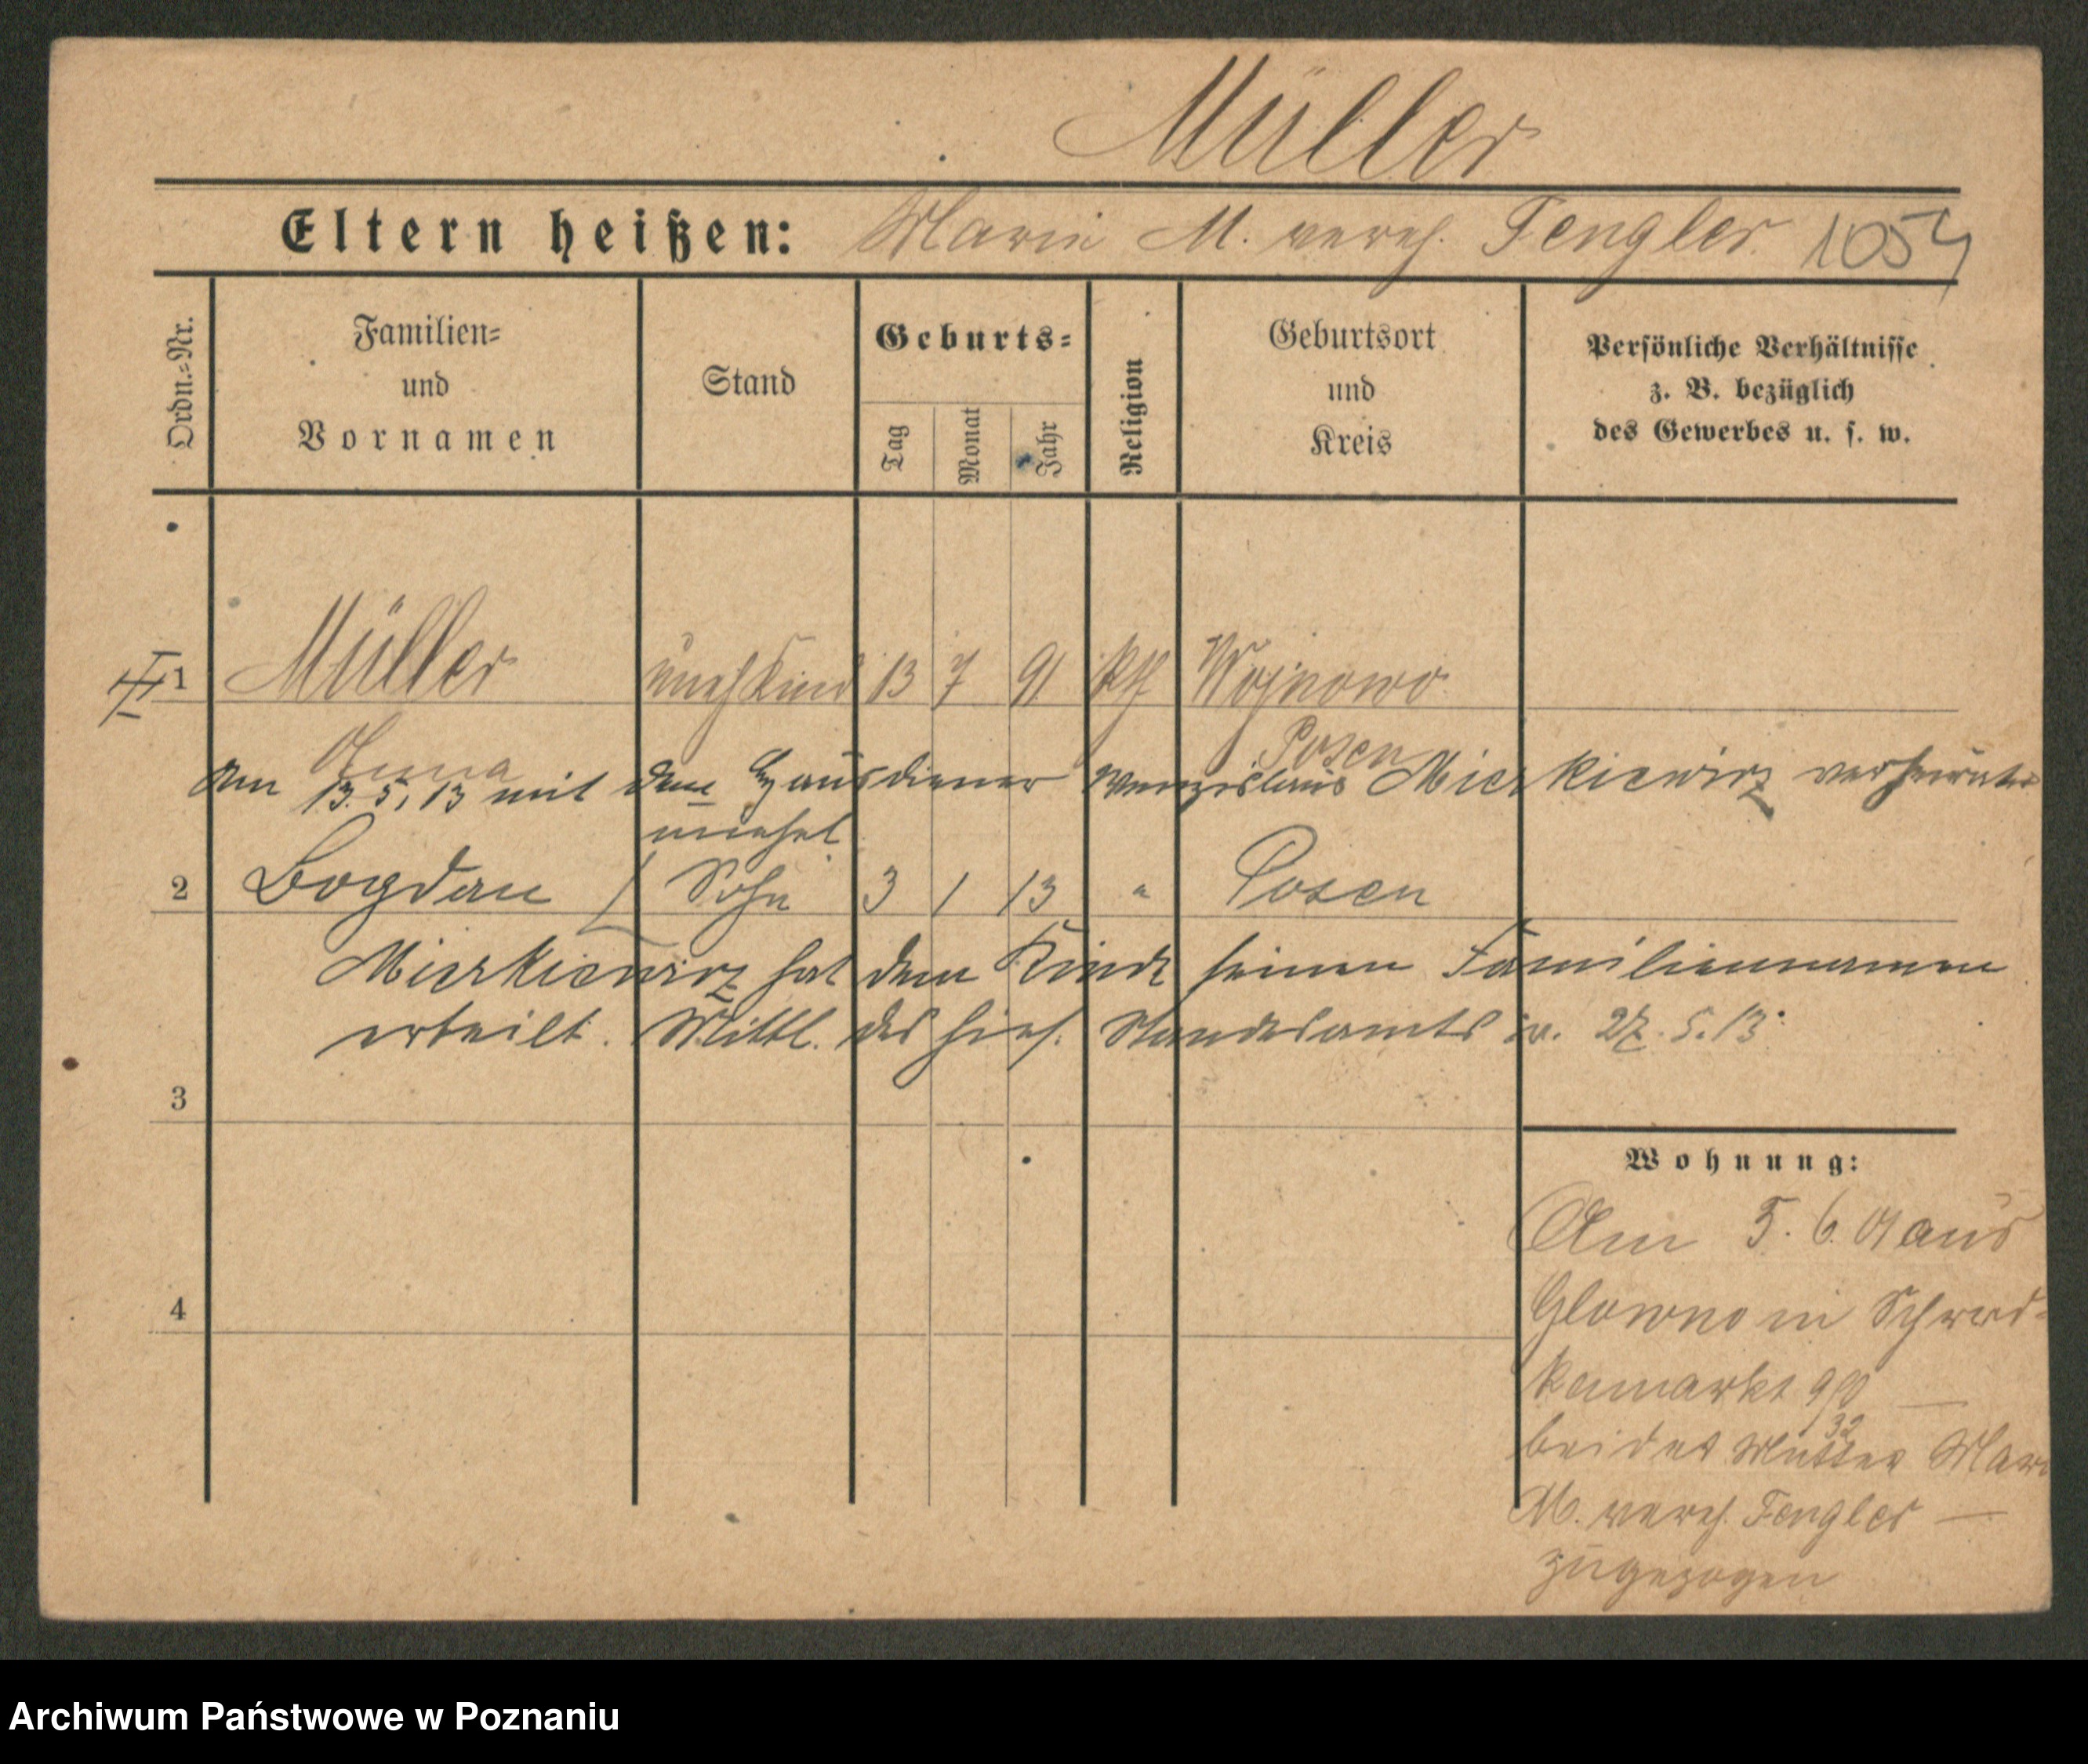 Müller
Eltern heißen: Marie M. vereh. Fengler 1054
Ordn.-Nr.
Familien-
und
Vornamen
Stand
Geburts-
Tag
Monat
Jahr
Religion
Geburtsort
und
Kreis
Persönliche Verhältnisse
z. B. bezüglich
des Gewerbes u. s. w.
1 Müller unehKInd 13 7 91 kth Wojnowo
Anna Posen
Am 13.5.13 mit dem Hausdiener Wenzeslaus Mierkiewicz verheirate
unehel
2 Bogdan Sohn 3 1 13 " Posen
Mierkiewicz hat dem Kinde seinen Familiennamen
erteilt. Mittl. des hies. Standesamts v. 27.5.13.
3
Wohnung:
Am 5.6.01 aus
4
Glowno in Schrod-
kamarkt 9/10
32
bei der Mutter Mari
M. vereh. Fengler
zugezogen
Archiwum Państwowe w Poznaniu